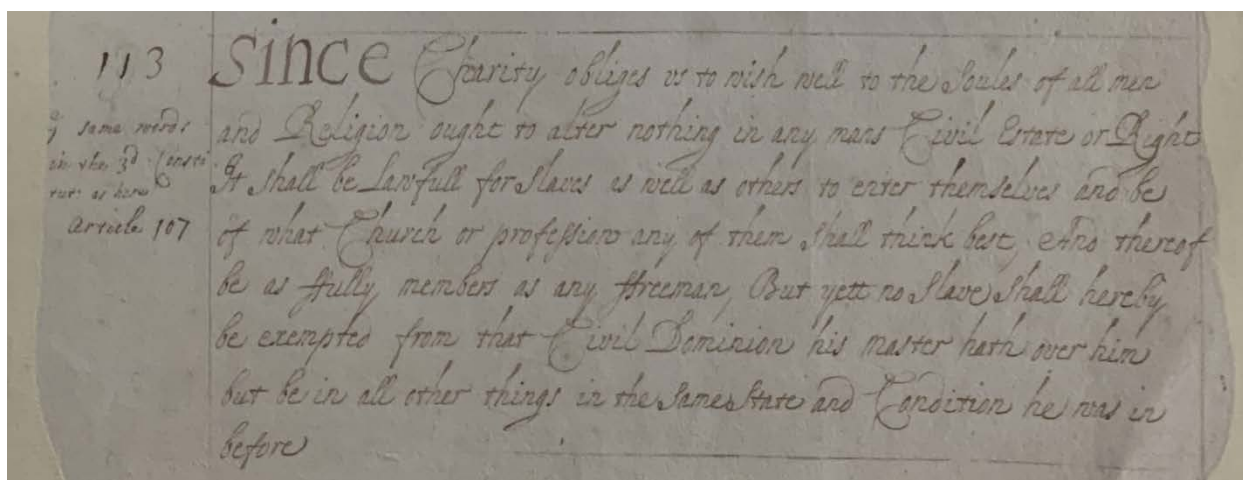 113
ÿ same words
in the 3d Consti
tut: as here
Article 107
SINCE Charity obliges vs to wish well to the Soules of all men
and Religion ought to alter nothing in any mans Civil Estate or Right
It shall be Lawfull for Slaves as well as others to enter themselves and be
of what Church or profession any of them shall think best, And thereof
be as ffully members as any ffreeman, But yett no Slave shall hereby
be exempted from that Civil Dominion his master hath over him
but be in all other things in the Same State and Condition he was in
before